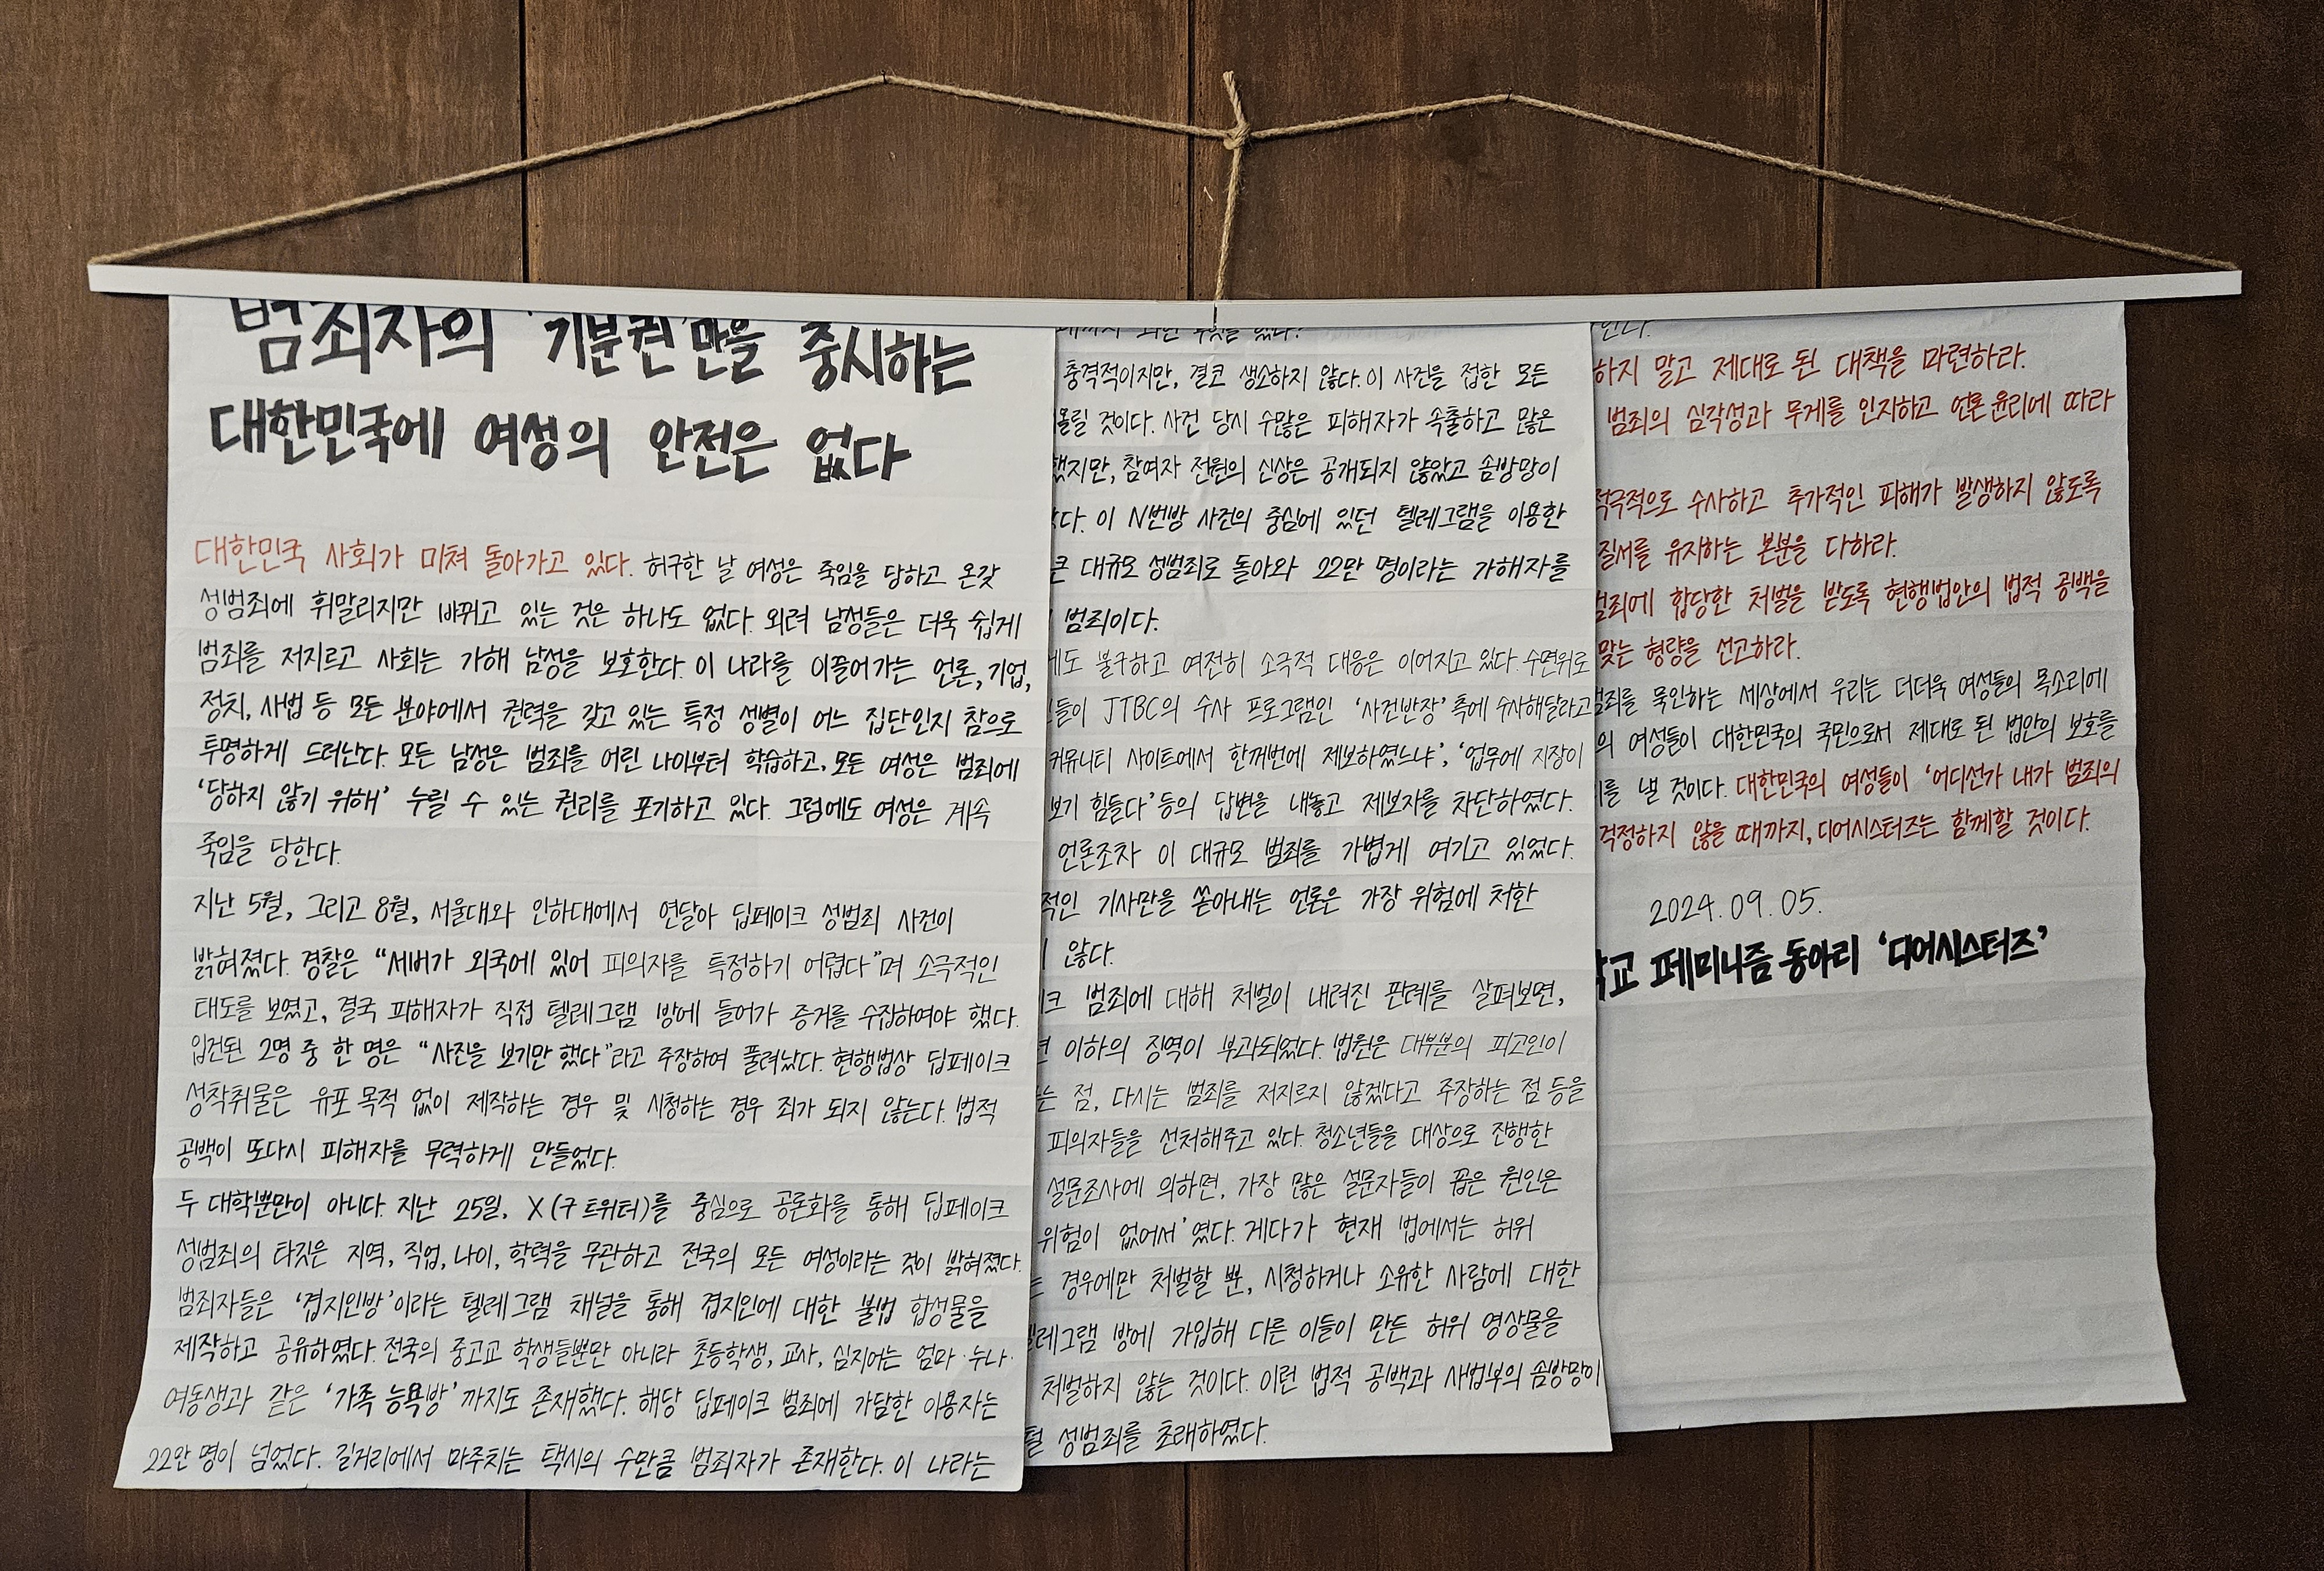 범죄자의 '기분권'만을 중시하는
대한민국에 여성의 안전은 없다
대한민국 사회가 미쳐 돌아가고 있다. 허구한 날 여성은 죽임을 당하고 온갖
성범죄에 휘말리지만 바뀌고 있는 것은 하나도 없다. 외려 남성들은 더욱 쉽게
범죄를 저지르고 사회는 가해 남성을 보호한다. 이 나라를 이끌어가는 언론, 기업,
정치, 사법 등 모든 분야에서 권력을 갖고 있는 특정 성별이 어느 집단인지 참으로
투명하게 드러난다. 모든 남성은 범죄를 어린 나이부터 학습하고, 모든 여성은 범죄에
'당하지 않기 위해' 누릴 수 있는 권리를 포기하고 있다. 그럼에도 여성은 계속
죽임을 당한다.
지난 5월, 그리고 8월, 서울대와 인하대에서 연달아 딥페이크 성범죄 사건이
밝혀졌다. 경찰은 "서버가 외국에 있어 피의자를 특정하기 어렵다"며 소극적인
태도를 보였고, 결국 피해자가 직접 텔레그램 방에 들어가 증거를 수집하여야 했다.
입건된 2명 중 한 명은 "사진을 보기만 했다"라고 주장하여 풀려났다. 현행법상 딥페이크
성착취물은 유포 목적 없이 제작하는 경우 및 시청하는 경우 죄가 되지 않는다. 법적
공백이 또다시 피해자를 무력하게 만들었다.
두 대학뿐만이 아니다. 지난 25일, X(구 트위터)를 중심으로 공론화를 통해 딥페이크
성범죄의 타깃은 지역, 직업, 나이, 학력을 무관하고 전국의 모든 여성이라는 것이 밝혀졌다.
범죄자들은 '겹지인방'이라는 텔레그램 채널을 통해 겹지인에 대한 불법 합성물을
제작하고 공유하였다. 전국의 중고교 학생들뿐만 아니라 초등학생, 교사, 심지어는 엄마·누나·
여동생과 같은 '가족 능욕방'까지도 존재했다. 해당 딥페이크 범죄에 가담한 이용자는
22만 명이 넘었다. 길거리에서 마주치는 택시의 수만큼 범죄자가 존재한다. 이 나라는
충격적이지만, 결코 생소하지 않다. 이 사건을 접한 모든
올릴 것이다. 사건 당시 수많은 피해자가 속출하고 많은
했지만, 참여자 전원의 신상은 공개되지 않았고 솜방망이
다. 이 N번방 사건의 중심에 있던 텔레그램을 이용한
큰 대규모 성범죄로 돌아와 22만 명이라는 가해자를
범죄이다.
에도 불구하고 여전히 소극적 대응은 이어지고 있다. 수면위로
들이 JTBC의 수사 프로그램인 '사건반장' 측에 수사해달라고
커뮤니티 사이트에서 한꺼번에 제보하였느냐', '업무에 지장이
보기 힘들다' 등의 답변을 내놓고 제보자를 차단하였다.
언론조차 이 대규모 범죄를 가볍게 여기고 있었다.
적인 기사만을 쏟아내는 언론은 가장 위험에 처한
않다.
크 범죄에 대해 처벌이 내려진 판례를 살펴보면,
년 이하의 징역이 부과되었다. 법원은 대부분의 피고인이
는 점, 다시는 범죄를 저지르지 않겠다고 주장하는 점 등을
피의자들을 선처해주고 있다. 청소년들을 대상으로 진행한
설문조사에 의하면, 가장 많은 설문자들이 꼽은 원인은
위험이 없어서'였다. 게다가 현재 법에서는 허위
는 경우에만 처벌할 뿐, 시청하거나 소유한 사람에 대한
텔레그램 방에 가입해 다른 이들이 만든 허위 영상물을
처벌하지 않는 것이다. 이런 법적 공백과 사법부의 솜방망이
털 성범죄를 초래하였다.
하지 말고 제대로 된 대책을 마련하라.
범죄의 심각성과 무게를 인지하고 언론 윤리에 따라
적극적으로 수사하고 추가적인 피해가 발생하지 않도록
질서를 유지하는 본분을 다하라.
범죄에 합당한 처벌을 받도록 현행법안의 법적 공백을
맞는 형량을 선고하라.
범죄를 묵인하는 세상에서 우리는 더더욱 여성들의 목소리에
의 여성들이 대한민국의 국민으로서 제대로 된 법안의 보호를
를 낼 것이다. 대한민국의 여성들이 '어디선가 내가 범죄의
걱정하지 않을 때까지, 디어시스터즈는 함께할 것이다.
2024.09.05.
학교 페미니즘 동아리 '디어시스터즈'